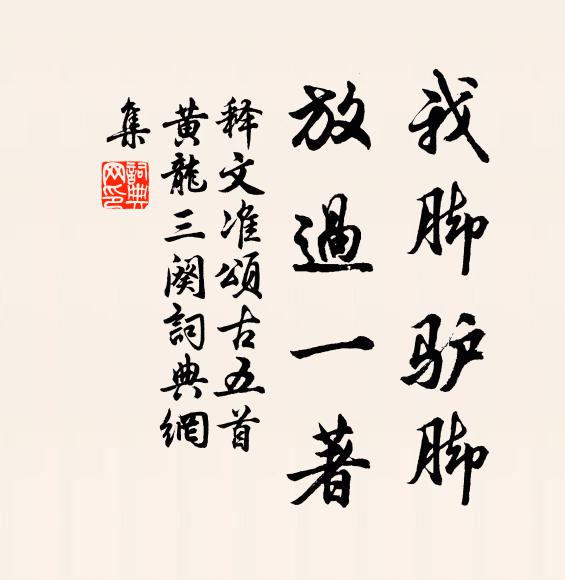 我脚驴脚
放過一著
释文准頌古五首
黃龍三関詞典網
集
詞典网印